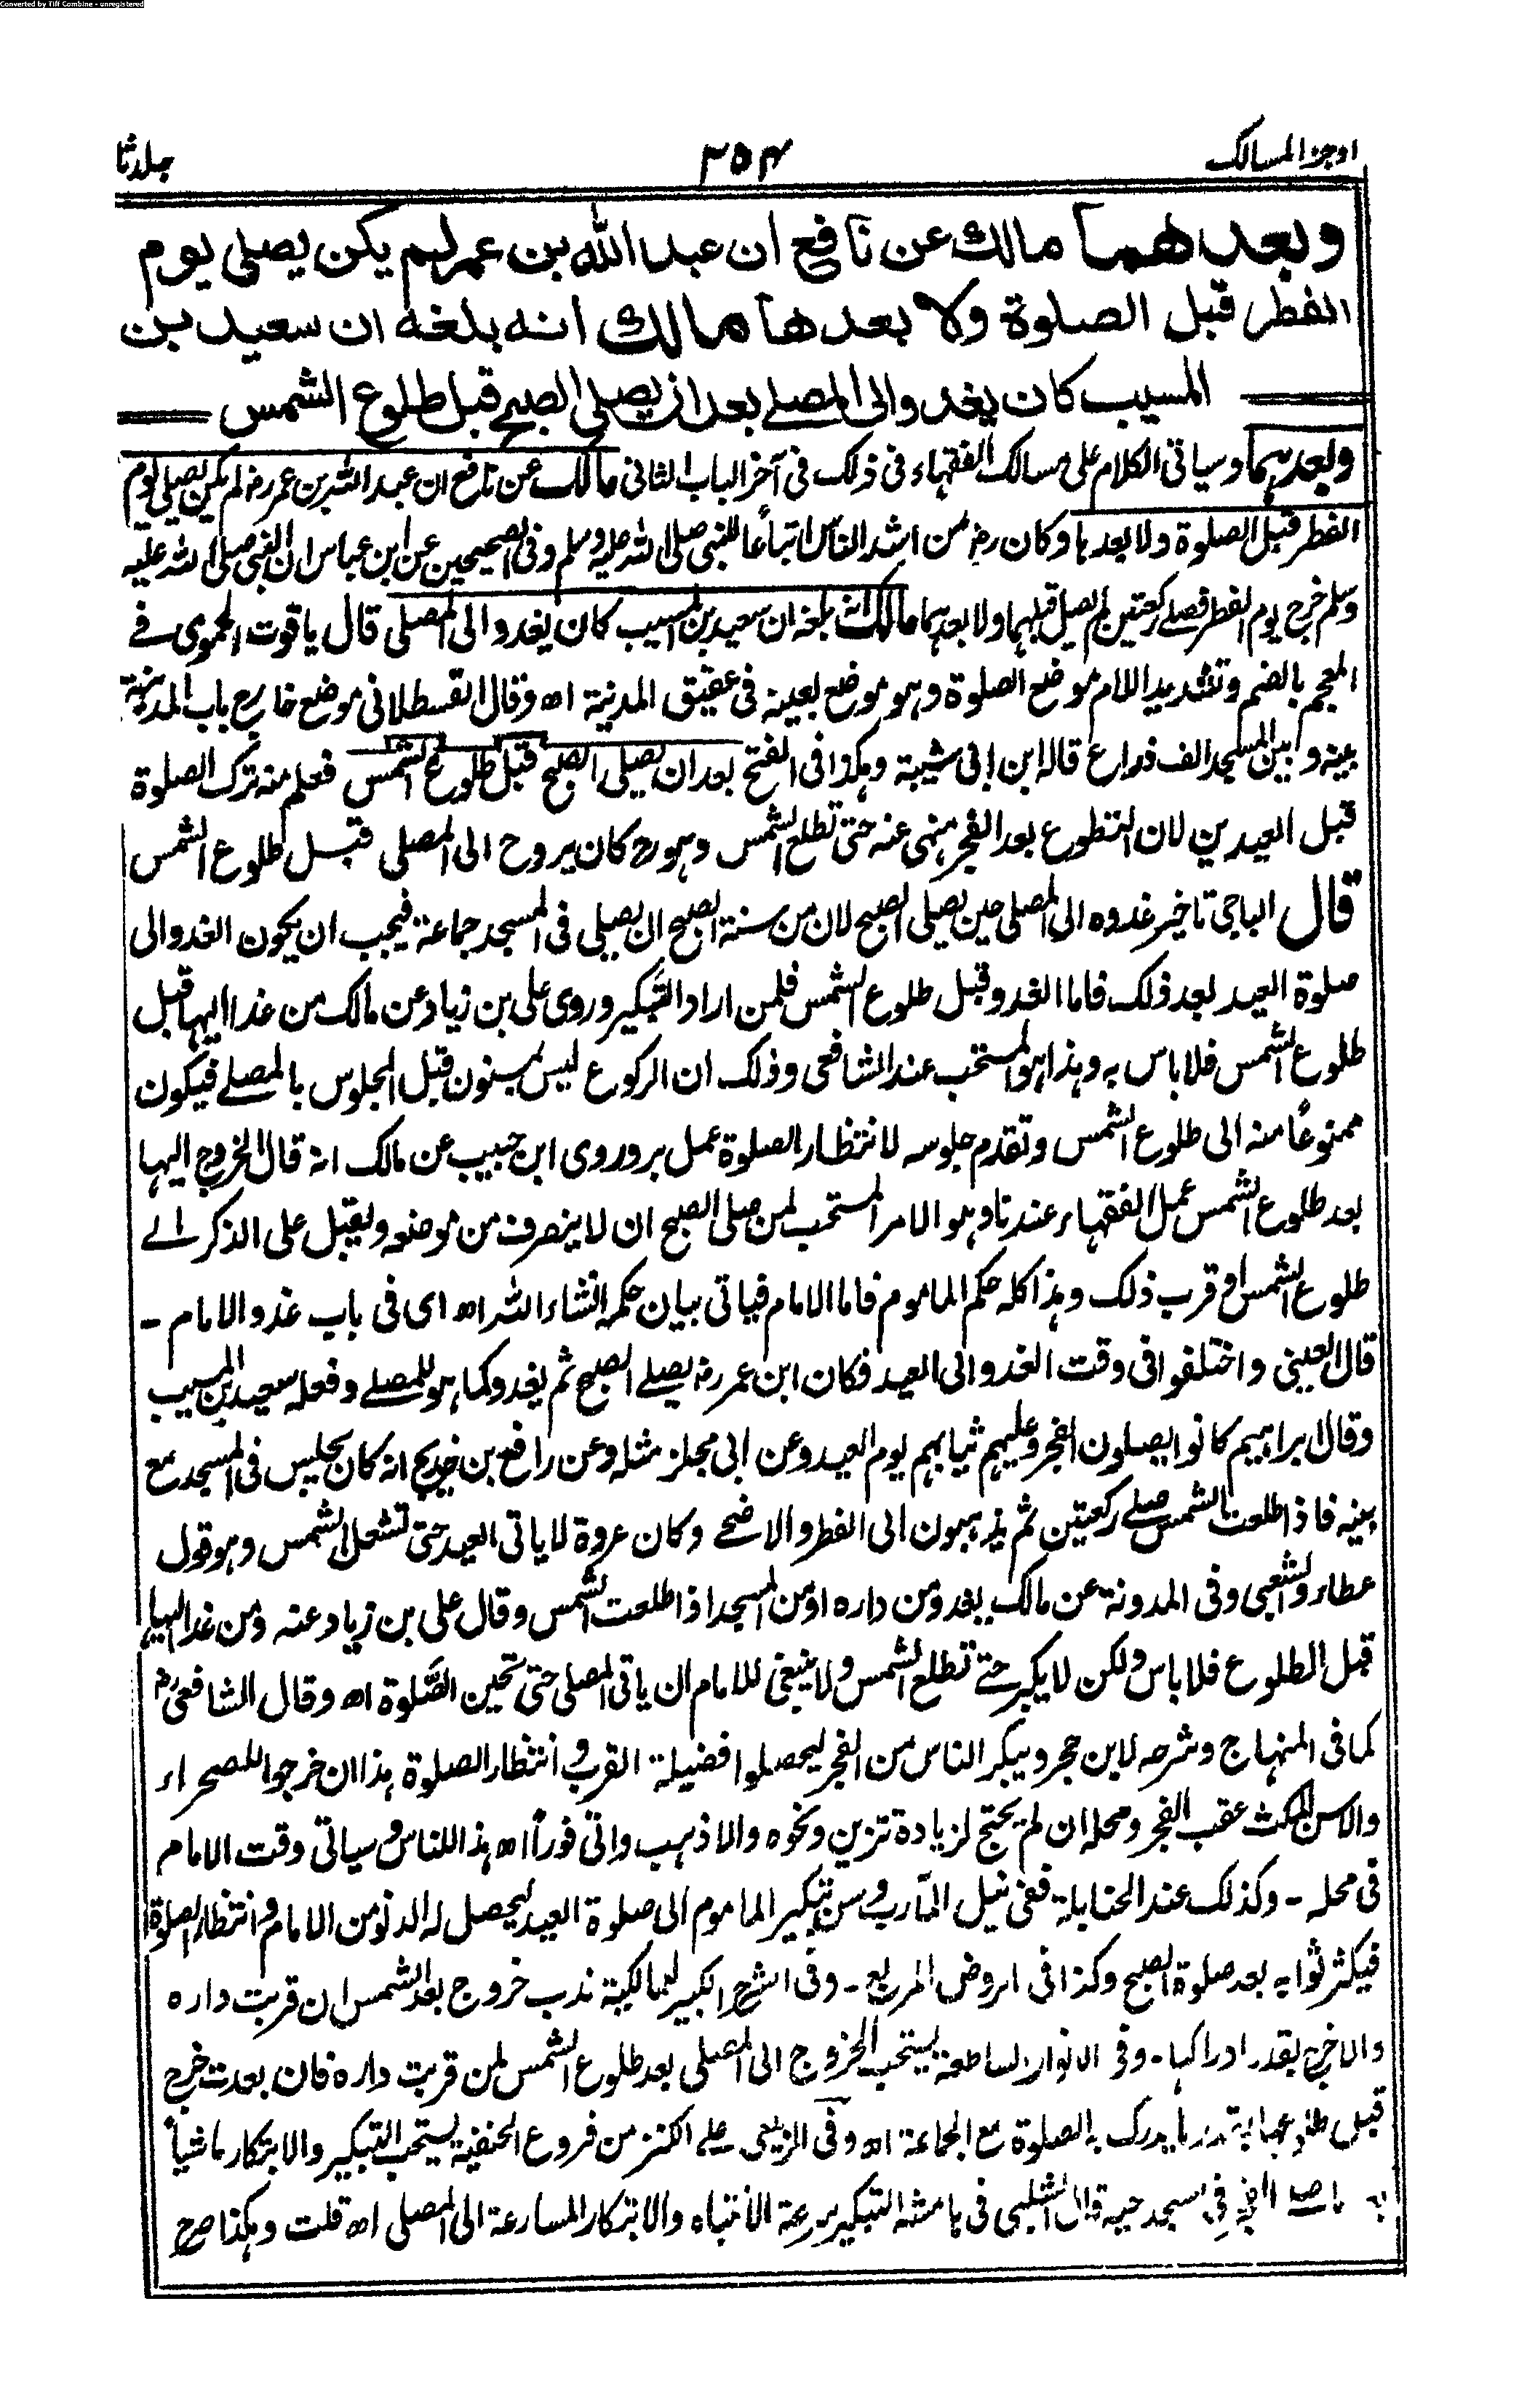 Converted by Tiff Combine - unregistered
اوجز المسالك
٣٥٤
جلد ثا
وبعدهما مالك عن نافع ان عبد الله بن عمر لم يكن يصلي يوم
الفطر قبل الصلوة ولا بعدها مالك انه بلغه ان سعيد بن
المسيب كان يغدو الى المصلے بعد ان يصلي الصبح قبل طلوع الشمس
وبعدهما وسياتى الكلام على مسالك الفقهاء فى ذلك فى آخر الباب الثانى مالك عن نافع ان عبد الله بن عمر رض لم يكن يصلي يوم
الفطر قبل الصلوة ولا بعدها وكان رض من اشد الناس اتباعًا للنبى صلى الله عليه وسلم وفى الصحيحين عن ابن عباس ان النبى صلى الله عليه
وسلم خرج يوم الفطر فصلے ركعتين لم يصل قبلهما ولا بعدهما مالك انه بلغه ان سعيد بن المسيب كان يغدو الى المصلى قال ياقوت الحموى فے
المعجم بالضم وتشديد اللام موضع الصلوة وهو موضع بعينه فى عقيق المدينة اھ وقال القسطلانى موضع خارج باب المدينة
بينه وبين المسجد الف ذراع قاله ابن ابى شيبة وهكذا فى الفتح بعد ان يصلى الصبح قبل طلوع الشمس فعلم منه ترك الصلوة
قبل العيدين لان التطوع بعد الفجر منهى عنه حتى تطلع الشمس وهو رح كان يروح الى المصلى قبل طلوع الشمس
قال الباجى تاخير غدوه الى المصلى حين يصلى الصبح لان من سنة الصبح ان يصلى فى المسجد جماعة فيجب ان يكون الغدو الى
صلوة العيد بعد ذلك فاما الغدو قبل طلوع الشمس فلمن اراد التبكير وروى على بن زياد عن مالك من غدا اليها قبل
طلوع الشمس فلا باس به وهذا هو المستحب عند الشافعى وذلك ان الركوع ليس بمسنون قبل الجلوس بالمصلے فيكون
ممنوعًا منه الى طلوع الشمس وتقدم جلوسه لانتظار الصلوة عمل بر وروى ابن حبيب عن مالك انه قال الخروج اليها
بعد طلوع الشمس عمل الفقهاء عندنا وهو الامر المستحب لمن صلى الصبح ان لا ينصرف من موضعه ويقبل على الذكر الے
طلوع الشمس او قرب ذلك وهذا كله حكم الماموم فاما الامام فياتى بيان حكمه انشاء الله اھ اى فى باب غدو الامام -
قال العينى واختلفوا فى وقت الغدو الى العيد فكان ابن عمر رض يصلے الصبح ثم يغدو كما هو للمصلے وفعله سعيد بن المسيب
وقال ابراهيم كانوا يصلون الفجر وعليهم ثيابهم يوم العيد وعن ابى مجلز مثله وعن رافع بن خديج انه كان يجلس فى المسجد مع
بنيه فاذا طلعت الشمس صلے ركعتين ثم يذهبون الى الفطر والاضحے وكان عروة لا ياتى العيد حتى تشعل الشمس وهو قول
عطاء والشعبى وفى المدونة عن مالك يغدو من داره او من المسجد اذا طلعت الشمس وقال على بن زياد عنه ومن غدا اليها
قبل الطلوع فلا باس ولكن لا يكبر حتے تطلع الشمس ولا ينبغى للامام ان ياتى المصلى حتى تحين الصلوة اھ وقال الشافعى رح
كما فى المنهاج وشرحه لابن حجر ويبكر الناس من الفجر ليحصلوا فضيلة القرب وانتظار الصلوة هذا ان خرجوا للصحراء
والا سن المكث عقب الفجر ومحله ان لم يحتج لزيادة تزين ونحوه والا ذهب واتى فورًا اھ هذا للناس وسياتى وقت الامام
فى محله - وكذلك عند الحنابلة ففى نيل المآرب وسن تبكير الماموم الى صلوة العيد ليحصل له الدنو من الامام وانتظار الصلوة
فيكثر ثوابه بعد صلوة الصبح وكذا فى الروض المربع - وفى الشرح الكبير للمالكية ندب خروج بعد الشمس ان قربت داره
والا خرج بقدر ادراكها - وفى الانوار الساطعة يستحب الخروج الى المصلى بعد طلوع الشمس لمن قربت داره فان بعدت خرج
قبل طلوعها بقدر ما يدرك به الصلوة مع الجماعة اھ وفى الزيلعى على الكنز من فروع الحنفية يستحب التبكير والابتكار ماشيًا
فى مسجد حيه قال الشلبى فى هامشه التبكير سرعة الانتباه والابتكار المسارعة الى المصلى اھ قلت وهكذا صرح